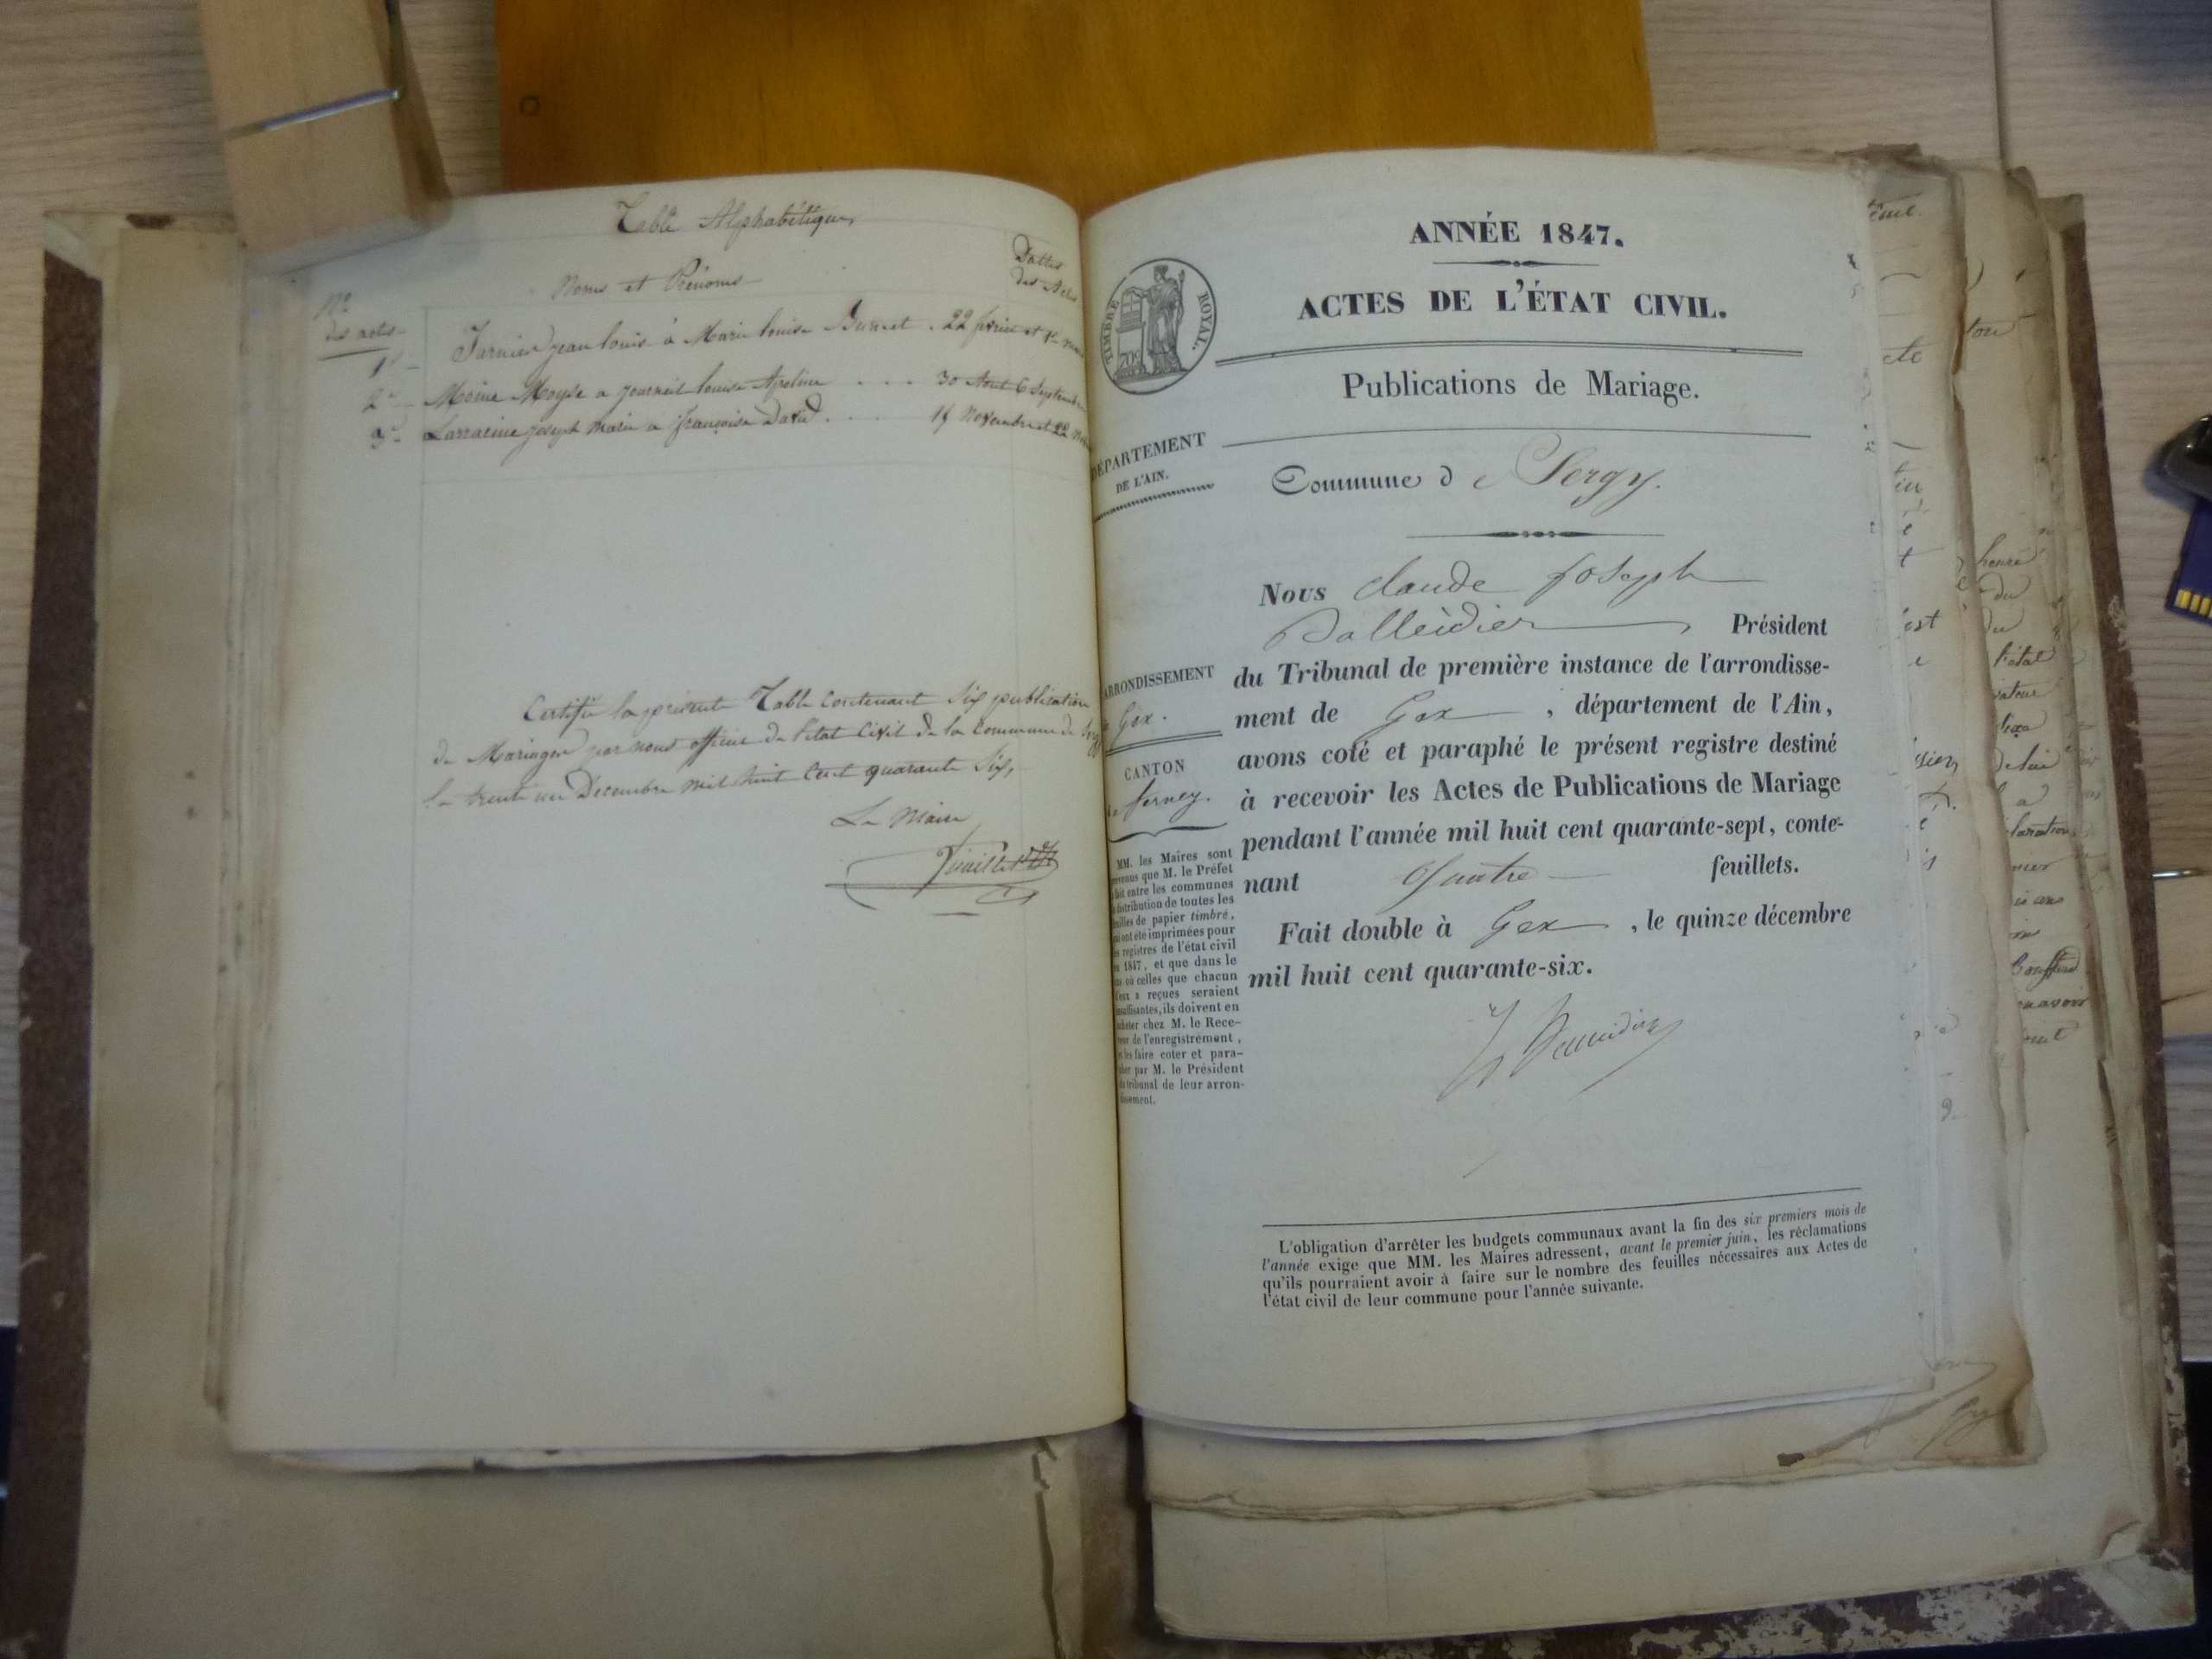 Table Alphabétique,
Nos des actes
Noms et Prénoms
Dattes des Actes
1° Jean louis à Marie louise Burnet . 22 février et 1er
2° Moine Moyse a Journeil louise Apoline . . . 30 Aout 6 Septembre
3° Larracine Joseph Marie a françoise David . . . . 15 Novembre et 22
Certifié la présente Table Contenant Six publication
de Mariages par nous officier de l'état Civil de la Commune de
le trente un Décembre mil huit Cent quarante Six,
Le Maire
ANNÉE 1847.
ACTES DE L'ÉTAT CIVIL.
TIMBRE ROYAL.
70c
Publications de Mariage.
DÉPARTEMENT
DE L'AIN.
Commune de Sergy.
Nous Claude Joseph
Balleidier, Président
du Tribunal de première instance de l'arrondisse-
ment de Gex, département de l'Ain,
avons coté et paraphé le présent registre destiné
à recevoir les Actes de Publications de Mariage
pendant l'année mil huit cent quarante-sept, conte-
nant Quatre feuillets.
Fait double à Gex, le quinze décembre
mil huit cent quarante-six.
ARRONDISSEMENT
de Gex.
CANTON
de ferney.
MM. les Maires sont
prévenus que M. le Préfet
a fait entre les communes
la distribution de toutes les
feuilles de papier timbré,
qui ont été imprimées pour
les registres de l'état civil
en 1847, et que dans le
cas où celles que chacun
d'eux a reçues seraient
insuffisantes, ils doivent en
acheter chez M. le Rece-
veur de l'enregistrement,
et les faire coter et para-
pher par M. le Président
du tribunal de leur arron-
dissement.
L'obligation d'arrêter les budgets communaux avant la fin des six premiers mois de
l'année exige que MM. les Maires adressent, avant le premier juin, les réclamations
qu'ils pourraient avoir à faire sur le nombre des feuilles nécessaires aux Actes de
l'état civil de leur commune pour l'année suivante.